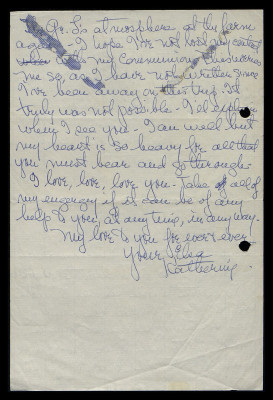 atmosphere at the farm
again - I hope I've not lost any
my Communion
me so, as I have not written since
I've been away on the trip. It
truly was not possible - I'll explain
when I see you - I am well but
my heart is so heavy for all that
you must bear and go through.
I love, love, love you - Take all of
my energy if it can be of any
help to you, at any time, in any way.
My love to you for ever & ever
Your
Katherine